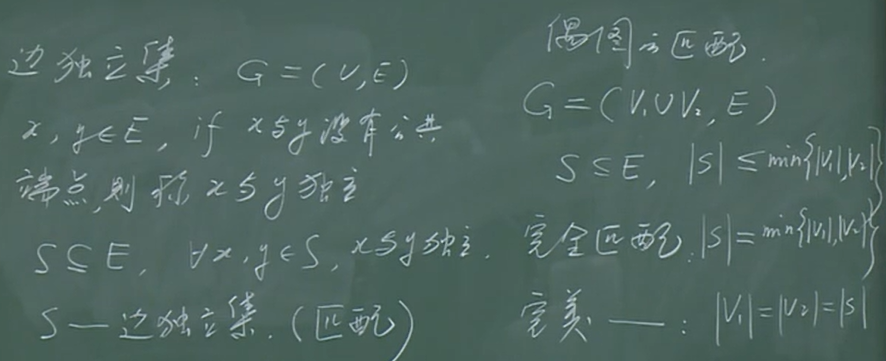 边独立集: G=(V,E)
x,y∈E, if x与y没有公共
端点,则称x与y独立
S⊆E, ∀x,y∈S, x与y独立.
S—边独立集.(匹配)
偶图的匹配.
G=(V₁∪V₂,E)
S⊆E, |S|≤min{|V₁|,|V₂|}
完全匹配:|S|=min{|V₁|,|V₂|}
完美——: |V₁|=|V₂|=|S|